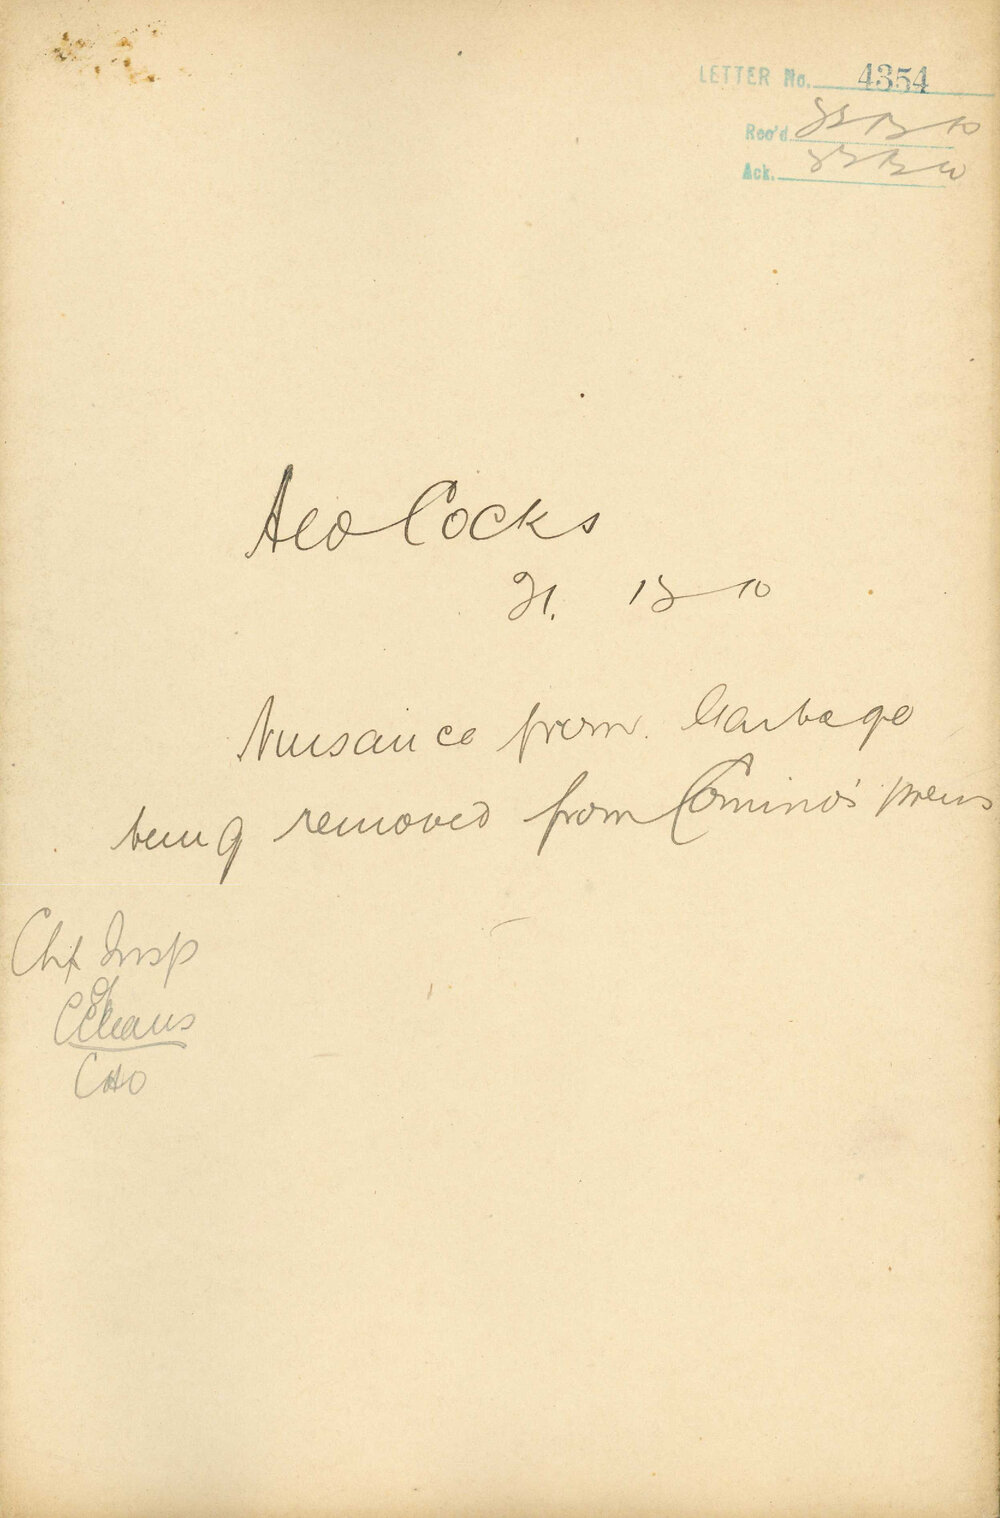 LETTER No. 4354
Rec'd
Ack.
Geo Cocks
21. 12 10
Nuisance from Garbage
being removed from Comino's prems
Chf Insp
of
Cleans
CHO